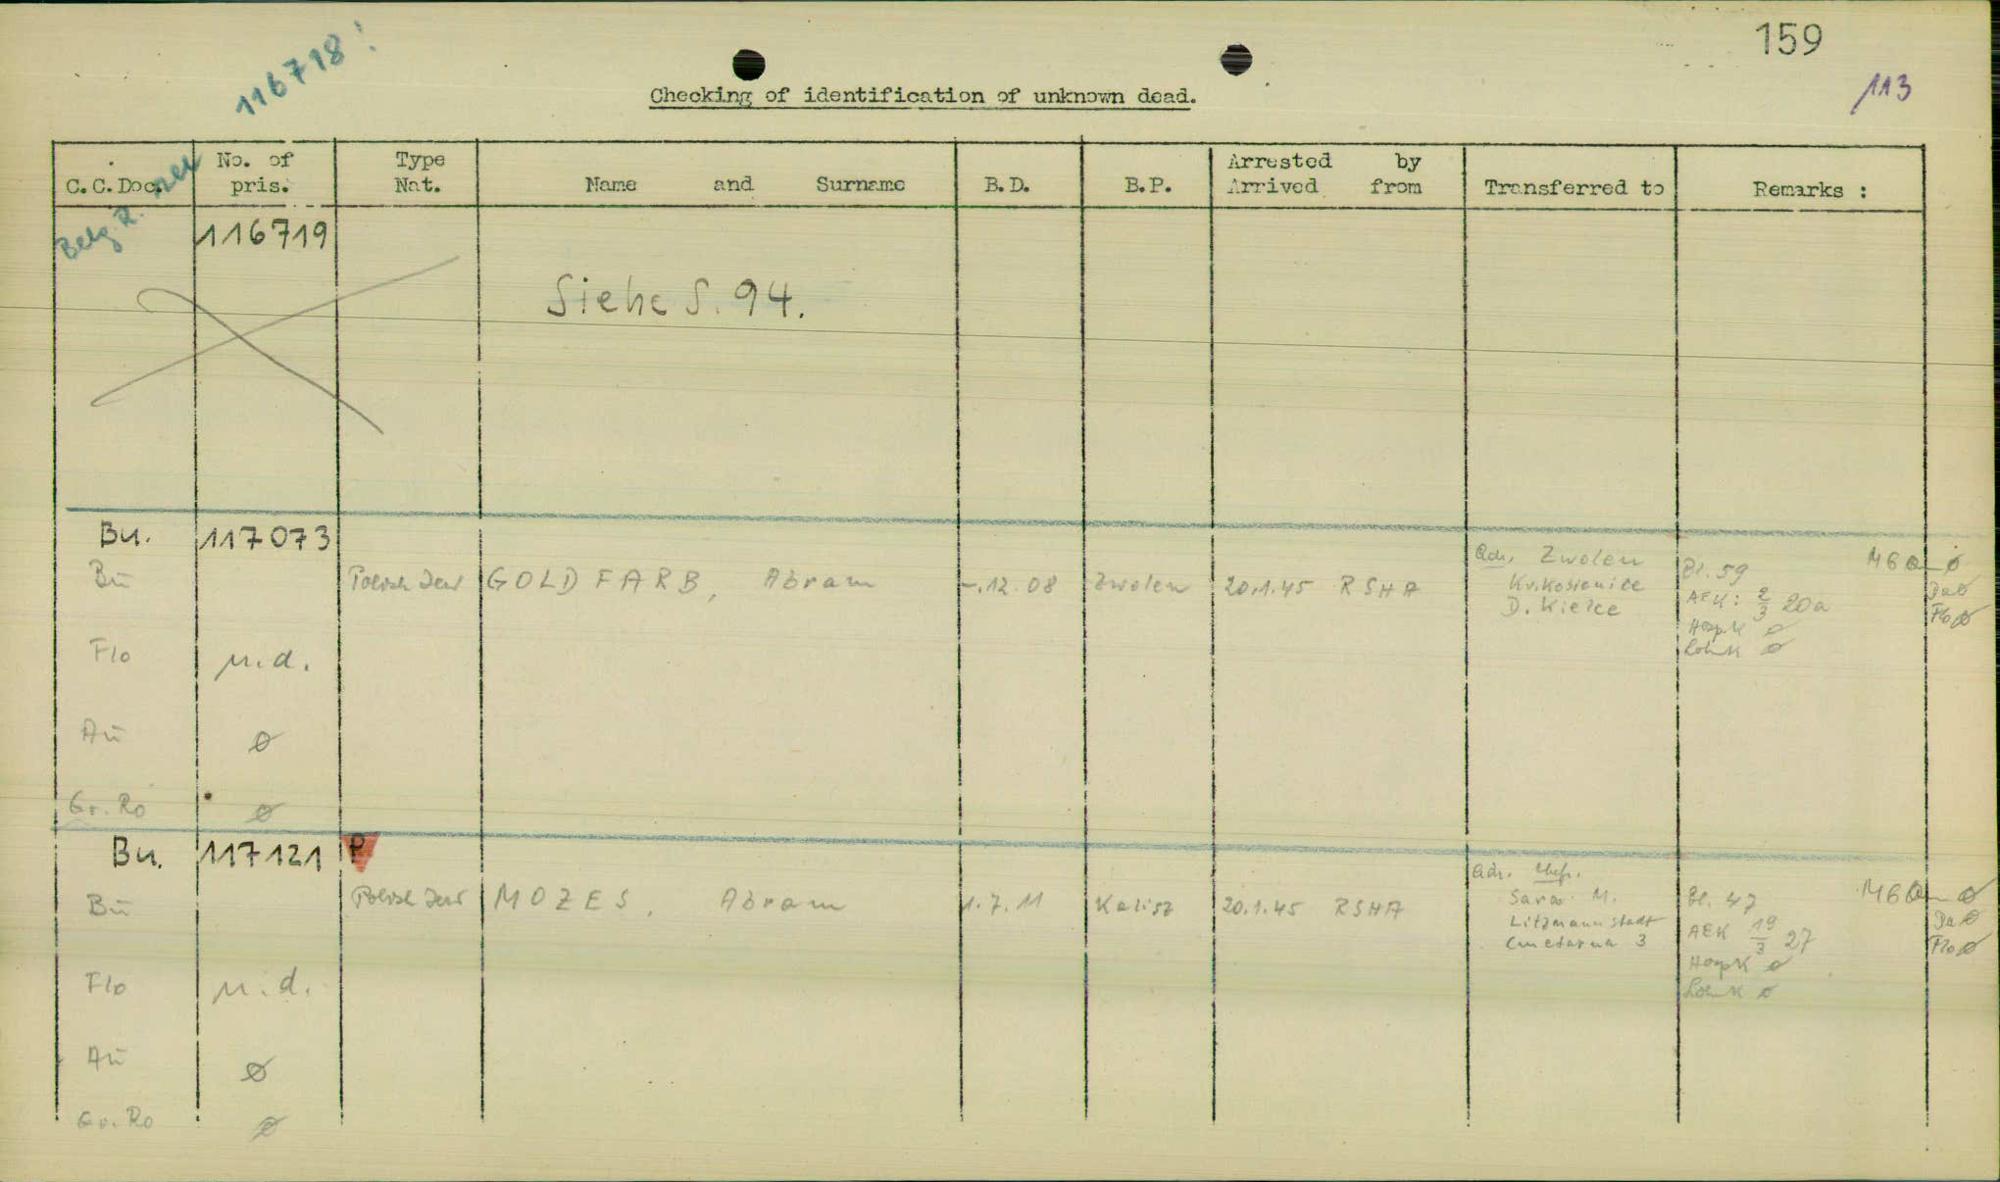 159
113
116718!
Checking of identification of unknown dead.
C.C.Doc. No. of pris. Type Nat. Name and Surname B.D. B.P. Arrested by Arrived from Transferred to Remarks :
Belg R.
116719
Siehe S. 94.
Bu. 117073
Bu Polish Jew GOLDFARB, Abram -.12.08 Zwolen 20.1.45 RSHA
Adr. Zwolen
Kr. Kosienice
D. Kielce
Bl. 59
AEK: 2/3 20a
HospK ø
ø
Da ø
Flo ø
Flo n.d.
Au ø
Gr. Ro ø
Bu. 117121 P
Bu Polish Jew MOZES, Abram 1.7.11 Kalisz 20.1.45 RSHA
Adr. Ehefr.
Sara M.
Litzmannstadt
Cmetarna 3
Bl. 47
AEK 19/3 27
HospK ø
ø
Da ø
Flo ø
Flo n.d.
Au ø
Gr. Ro ø